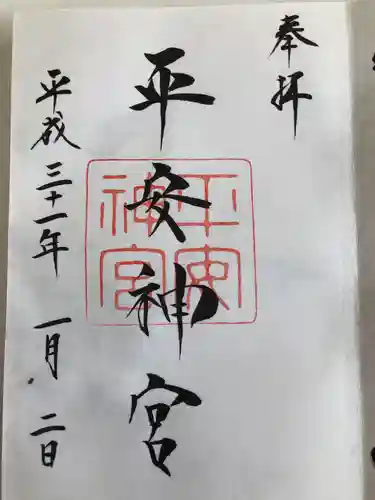 奉拝
平安神宮
平安神宮
平成三十一年一月二日